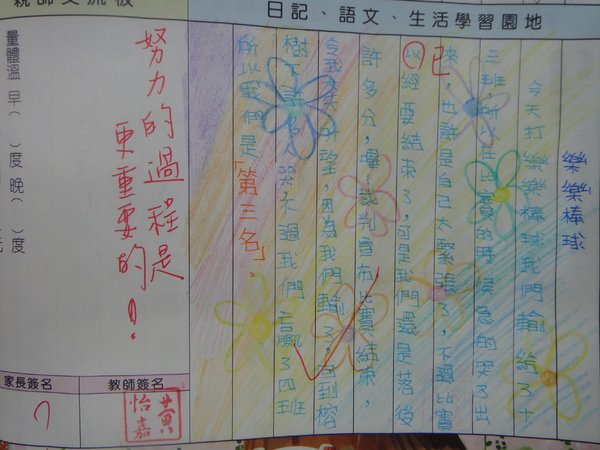 親師交流板
日記、語文、生活學習園地
樂樂棒球
今天打樂樂棒球我們輸給了十
三班,所以在比賽的時候急的哭了出
來,也許是自己太緊張了,不過比賽
以經要結束了,可是我們還是落後
已
許多分,嗶!裁判宣布比賽結束,
令我失望,因為我們輸了,回到榕
樹下許多 哭,不過我們贏了四班
所以我們是「第三名」。
努力的過程是
更重要的!
量體溫 早( )度 晚( )度
家長簽名
教師簽名
黃怡嘉